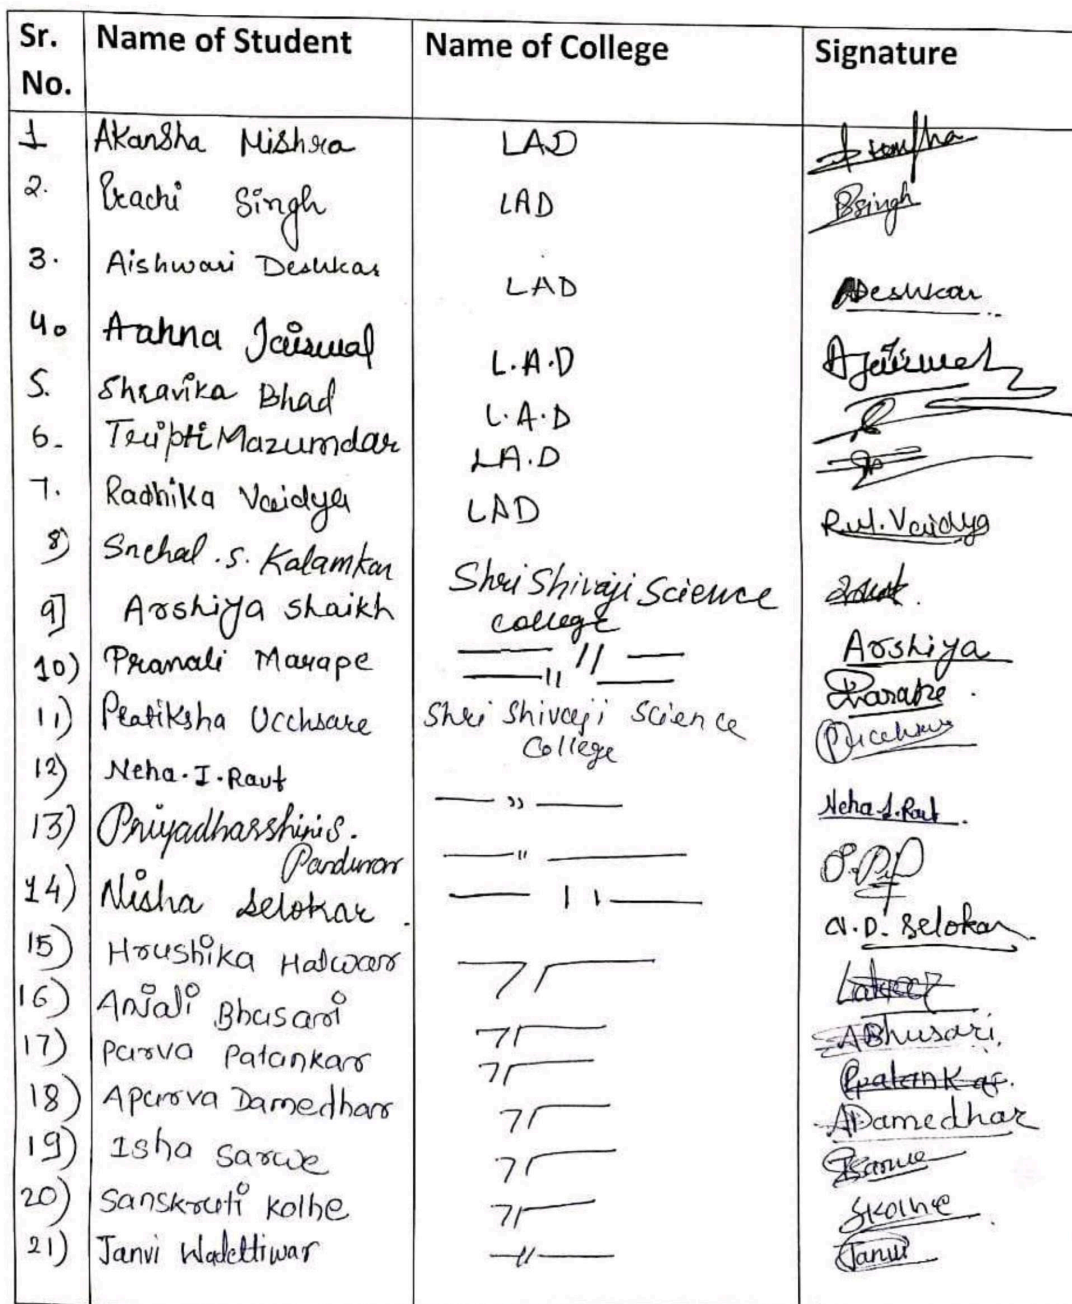 Sr. No. Name of Student Name of College Signature
1 Akansha Mishra LAD
2. Prachi Singh LAD PSingh
3. Aishwari Deshkar LAD ADeshkar
4. Aahna Jaiswal L.A.D AJaiswal
5. Shravika Bhad L.A.D
6. Trupti Mazumdar LA.D
7. Radhika Vaidya LAD R.M. Vaidya
8) Snehal .S. Kalamkar Shri Shivaji Science College
9] Arshiya Shaikh — // — Arshiya
10) Pranali Marape — 11 — Marape
11) Pratiksha Ucchsare Shri Shivaji Science College
12) Neha.I.Raut — " — Neha.I.Raut
13) Priyadharshini S. Panduran — " —
14) Nisha Selokar . — 11 — N.D. Selokar
15) Hrushika Halwar — // —
16) Anjali Bhusari — // — ABhusari
17) Purva Patankar — // — PPatankar.
18) Apurva Damedhar — // — ADamedhar
19) Isha Sarwe — // — ISarwe
20) Sanskruti Kolhe — // — SKolhe
21) Janvi Wadettiwar — // — Janvi